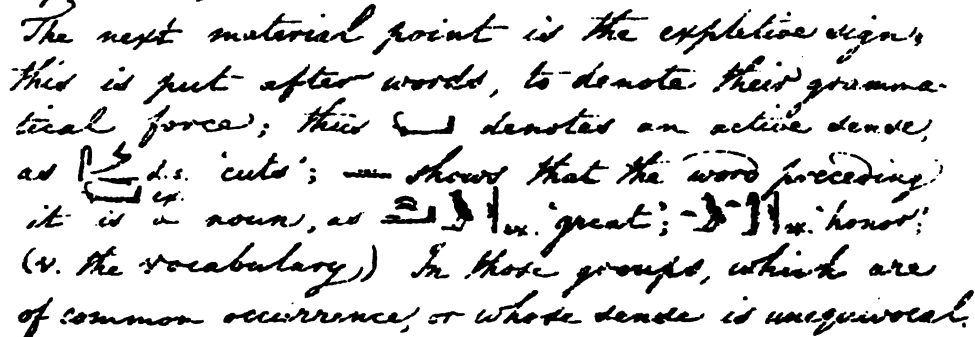 The next material point is the expletive sign;
this is put after words, to denote their gramma-
tical force; thus denotes an active sense,
as d.s. 'cuts'; shows that the word preceding
it is a noun, as ex. 'great'; ex. 'honor';
(v. the vocabulary) In those groups, which are
of common occurrence, or whose sense is unequivocal.